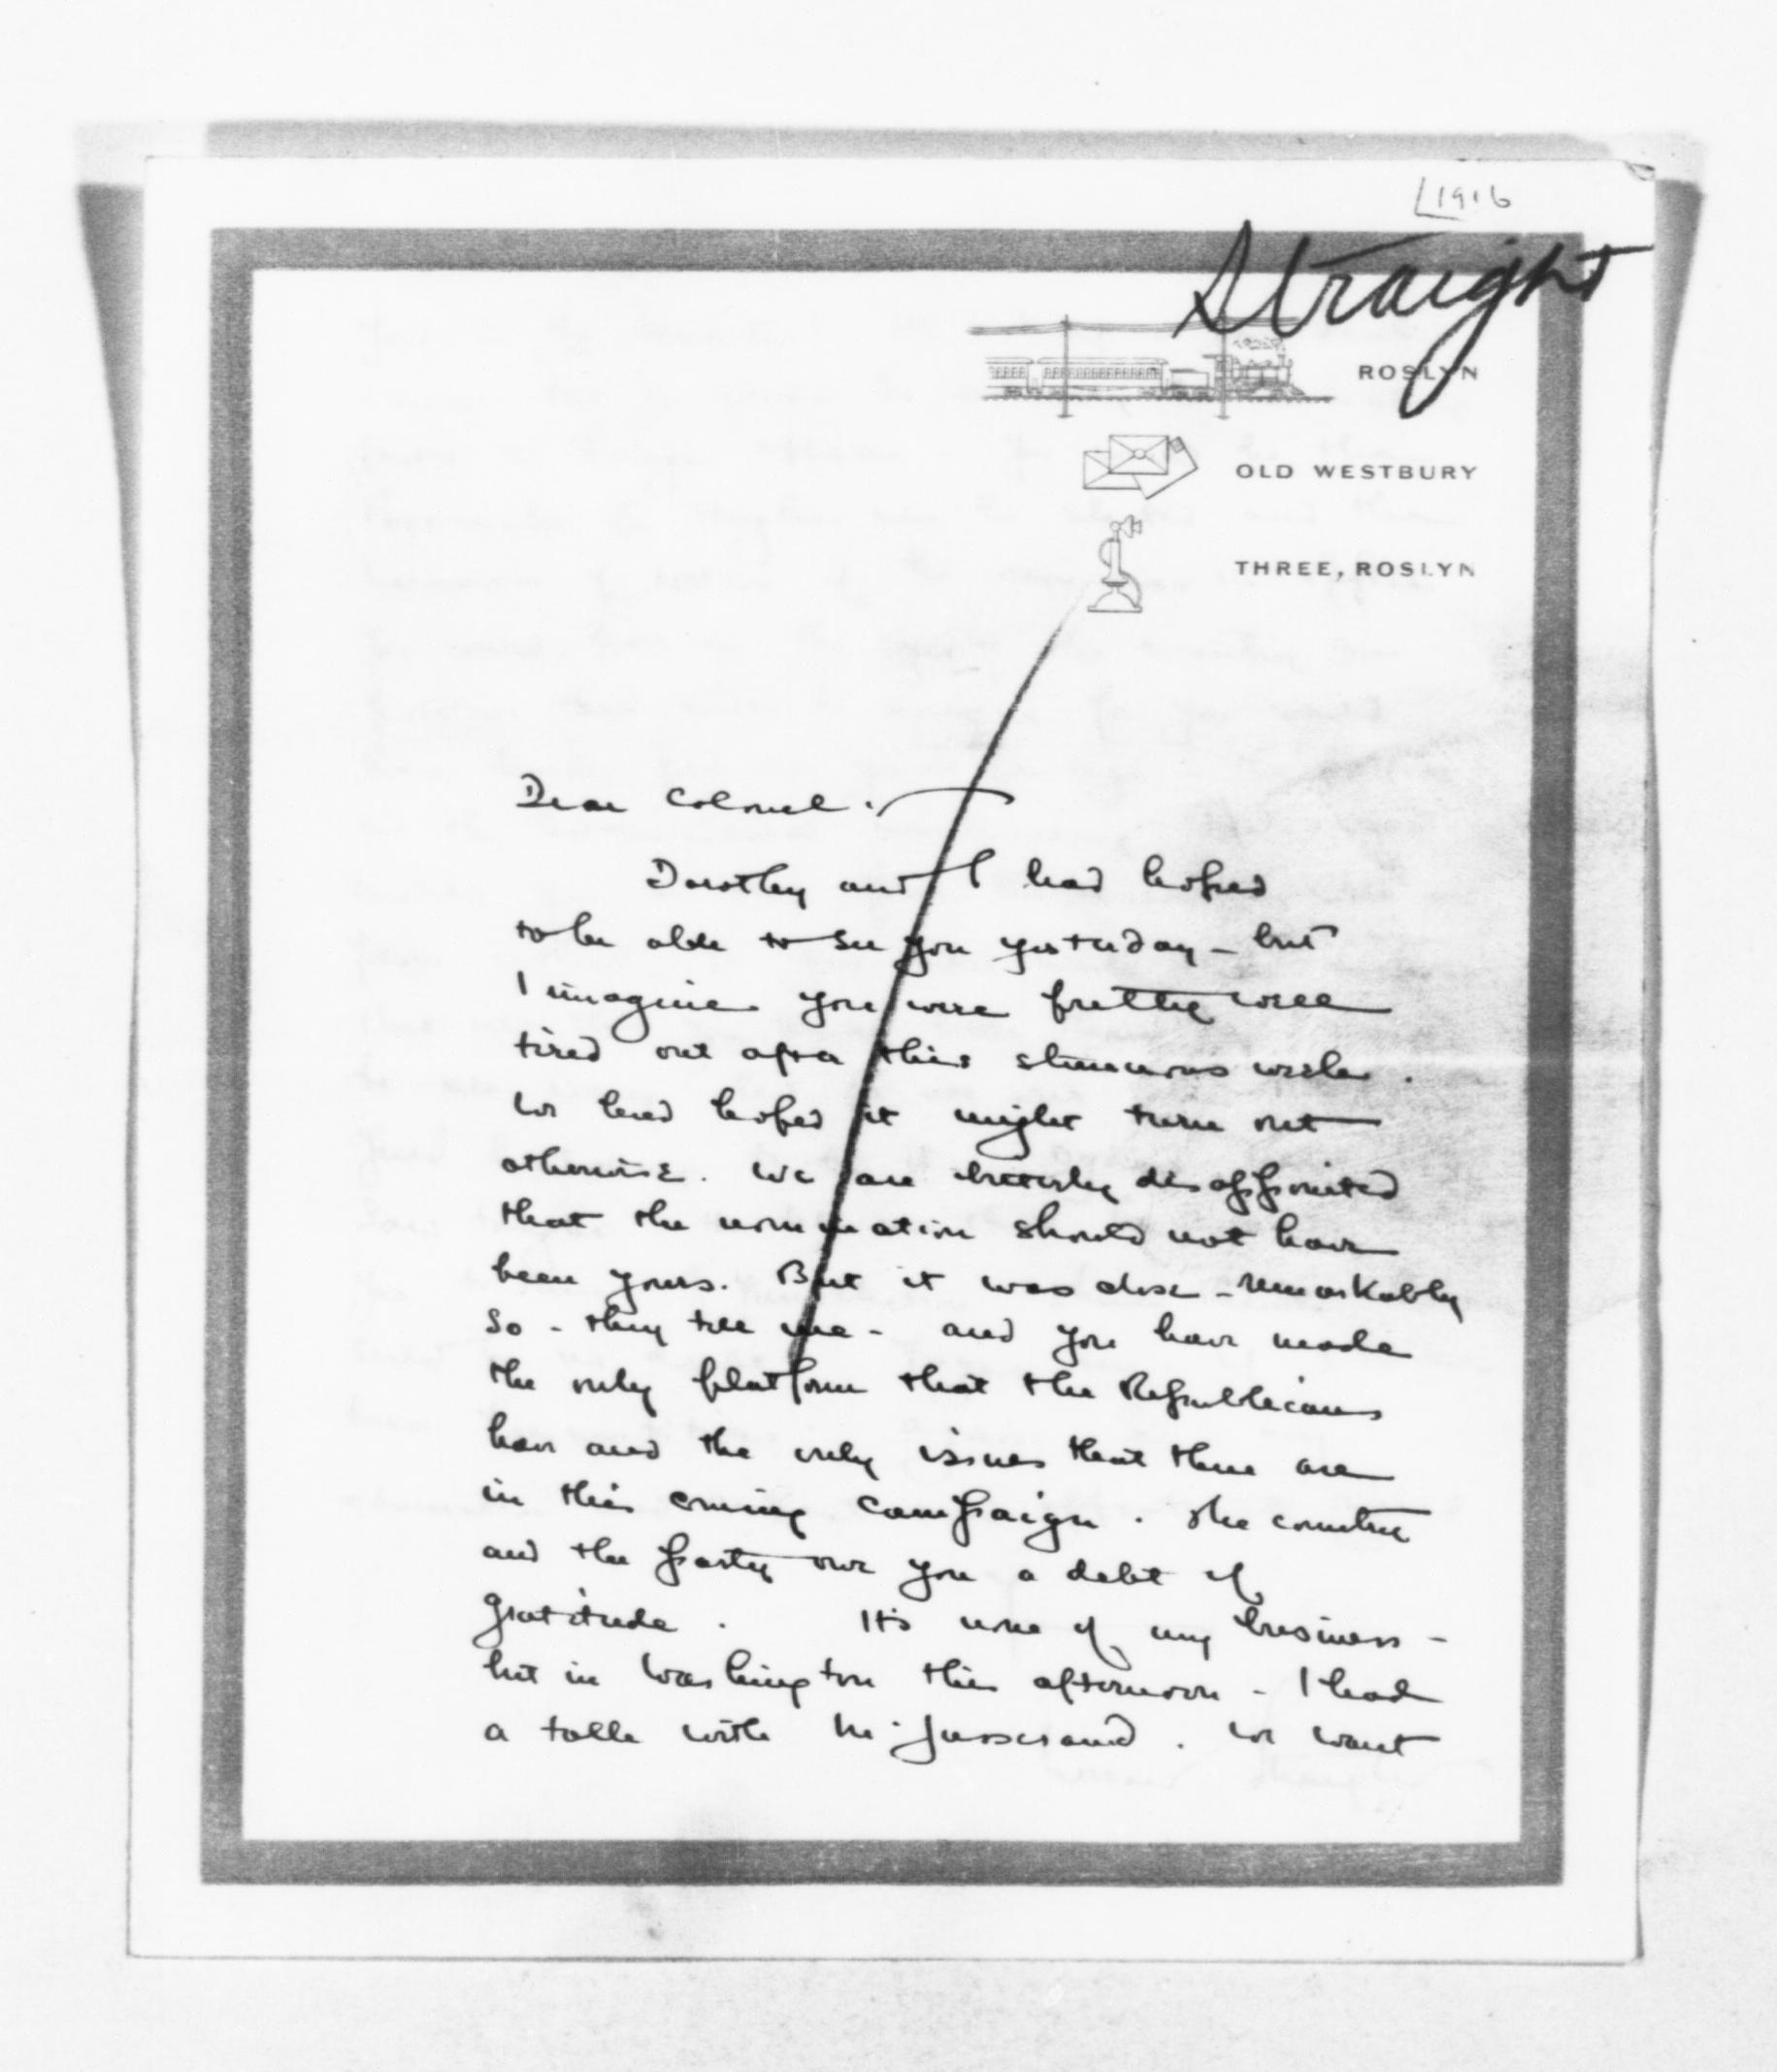 [1916
Straight
ROSLYN
OLD WESTBURY
THREE, ROSLYN
Dear Colonel.
Dorothy and I had hoped
to be able to see you yesterday - but
I imagine you were pretty well
tired out after this strenuous week.
We had hoped it might turn out
otherwise. We are bitterly disappointed
that the nomination should not have
been yours. But it was close - remarkably
so - they tell me - and you have made
the only platform that the Republicans
have and the only issues that there are
in this coming campaign. The country
and the party owe you a debt of
gratitude. It's none of my business -
but in Washington this afternoon - I had
a talk with M. Jusserand. We want